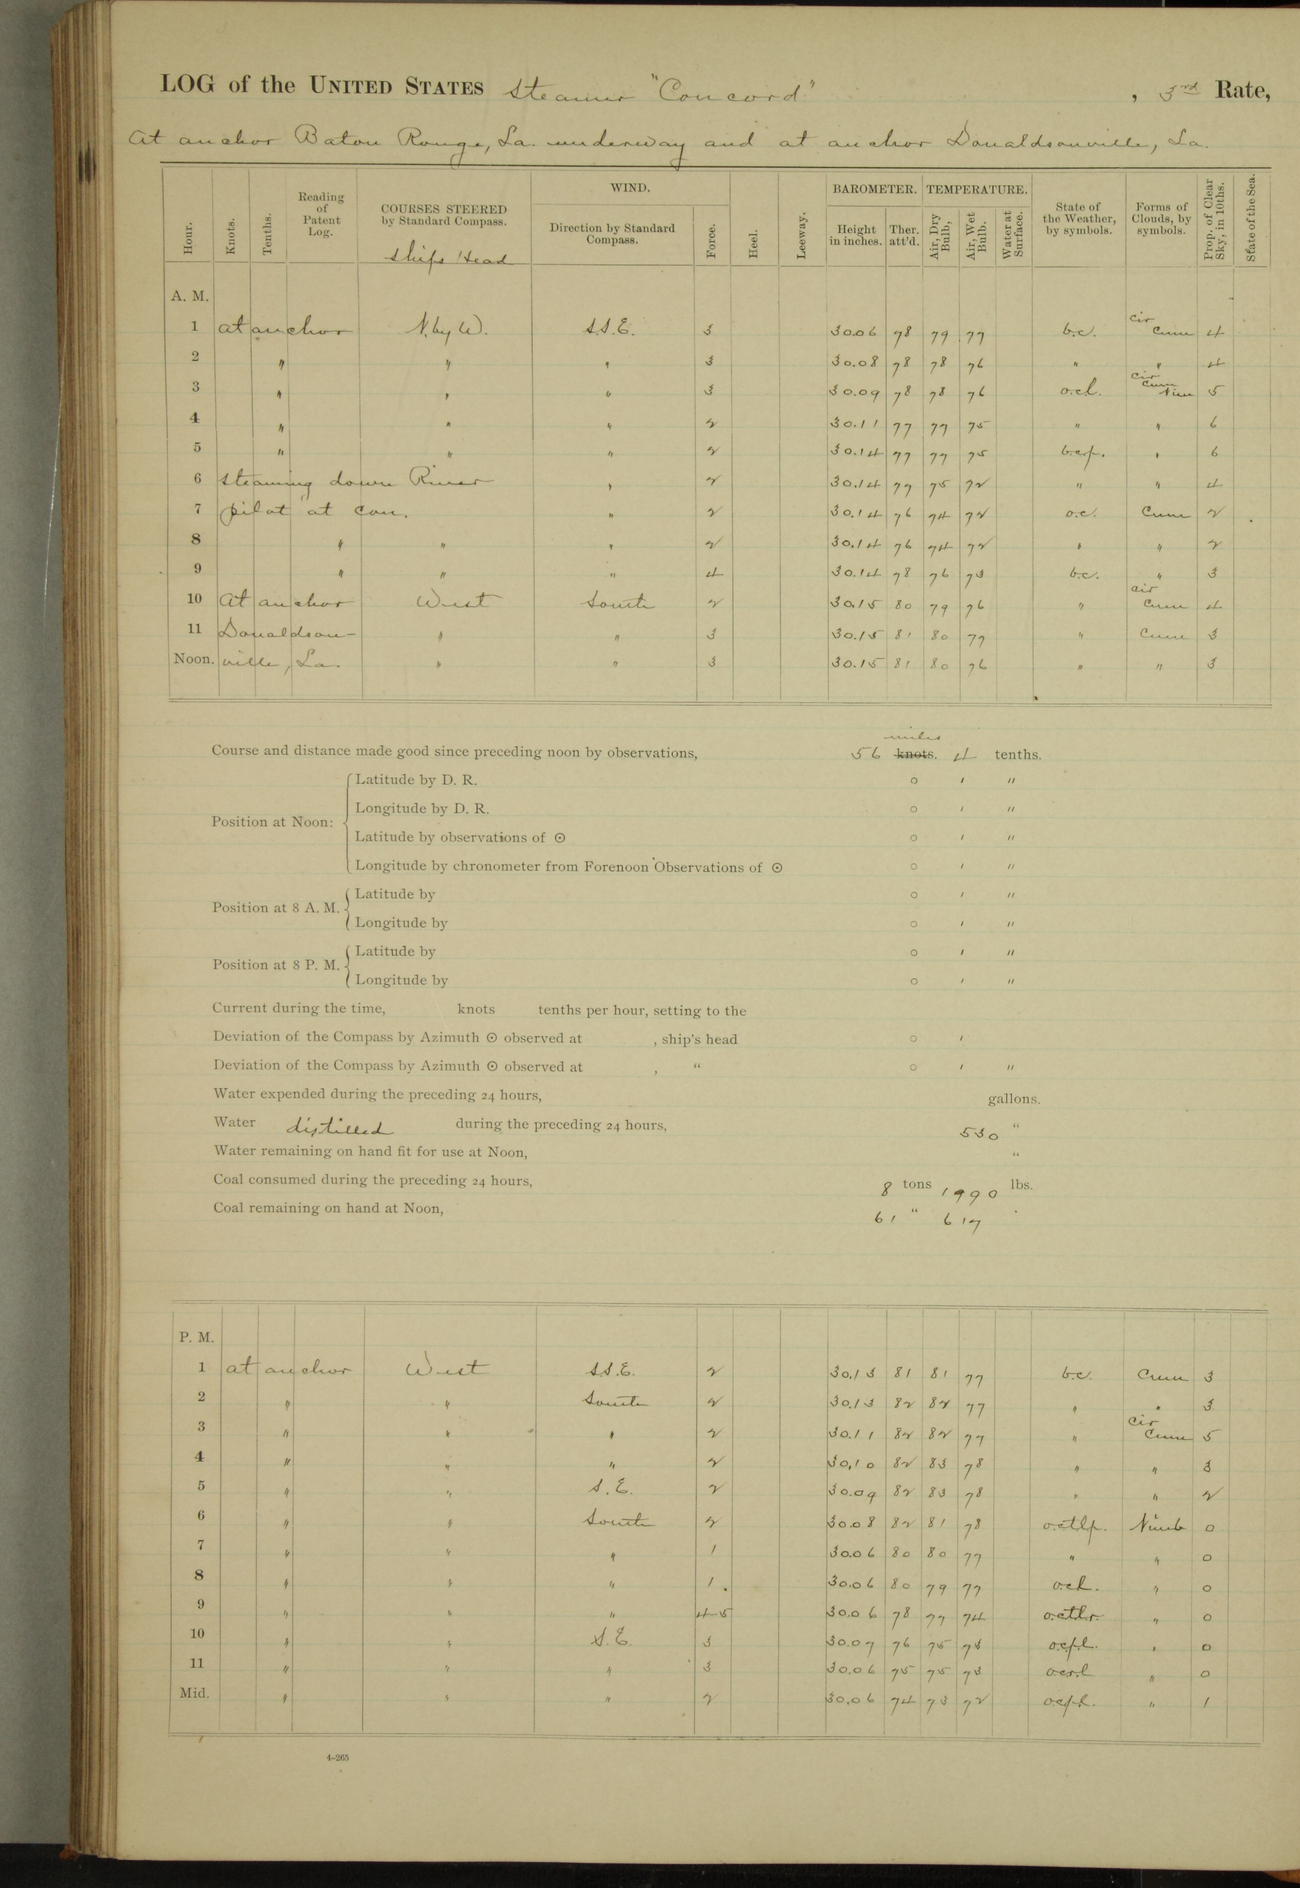 LOG of the UNITED STATES Steamer "Concord", 3rd Rate,
At anchor Baton Rouge, La. underway and at anchor Donaldsonville, La.
Hour. Knots. Tenths. Reading of Patent Log. COURSES STEERED by Standard Compass. Ships Head WIND. Direction by Standard Compass. Force. Heel. Leeway. BAROMETER. Height in inches. Ther. att'd. TEMPERATURE. Air, Dry Bulb, Air, Wet Bulb. Water at Surface. State of the Weather, by symbols. Forms of Clouds, by symbols. Prop. of Clear Sky, in 10ths. State of the Sea.
A. M.
1 at anchor N. by W. S.S.E. 3 30.06 78 79 77 b.c. cir Cum 4
2 " " " 3 30.08 78 78 76 " " 4
3 " " " 3 30.09 78 78 76 o.c.l. cir Cum Nim 5
4 " " " 2 30.11 77 77 75 " " 6
5 " " " 2 30.14 77 77 75 b.c.p. " 6
6 steaming down River " 2 30.14 77 75 72 " " 4
7 pilot at con. " 2 30.14 76 74 72 o.c. Cum 2
8 " " " 2 30.14 76 74 72 " " 2
9 " " " 4 30.14 78 76 73 b.c. " 3
10 At anchor West South 2 30.15 80 79 76 " cir Cum 4
11 Donaldson- " " 3 30.15 81 80 77 " Cum 3
Noon. ville, La. " " 3 30.15 81 80 76 " " 3
Course and distance made good since preceding noon by observations, 56 knots. miles 4 tenths.
Position at Noon: Latitude by D. R. ° ′ ″
Longitude by D. R. ° ′ ″
Latitude by observations of ☉ ° ′ ″
Longitude by chronometer from Forenoon Observations of ☉ ° ′ ″
Position at 8 A. M. Latitude by ° ′ ″
Longitude by ° ′ ″
Position at 8 P. M. Latitude by ° ′ ″
Longitude by ° ′ ″
Current during the time, knots tenths per hour, setting to the
Deviation of the Compass by Azimuth ☉ observed at , ship's head ° ′
Deviation of the Compass by Azimuth ☉ observed at , " ° ′ ″
Water expended during the preceding 24 hours, gallons.
Water distilled during the preceding 24 hours, 530 "
Water remaining on hand fit for use at Noon, "
Coal consumed during the preceding 24 hours, 8 tons 1990 lbs.
Coal remaining on hand at Noon, 61 " 617
P. M.
1 at anchor West S.S.E. 2 30.13 81 81 77 b.c. Cum 3
2 " " South 2 30.13 82 82 77 " " 3
3 " " " 2 30.11 82 82 77 " Cir Cum 5
4 " " " 2 30.10 82 83 78 " " 3
5 " " S.E. 2 30.09 82 83 78 " " 2
6 " " South 2 30.08 82 81 78 o.c.t.l.p. Nimb 0
7 " " " 1 30.06 80 80 77 " " 0
8 " " " 1. 30.06 80 79 77 o.c.l. " 0
9 " " " 4-5 30.06 78 77 74 o.c.t.l.r. " 0
10 " " S.E. 3 30.07 76 75 73 o.c.p.l. " 0
11 " " " 3 30.06 75 75 73 o.c.r.l " 0
Mid. " " " 2 30.06 74 73 72 o.c.p.l. " 1
4-265